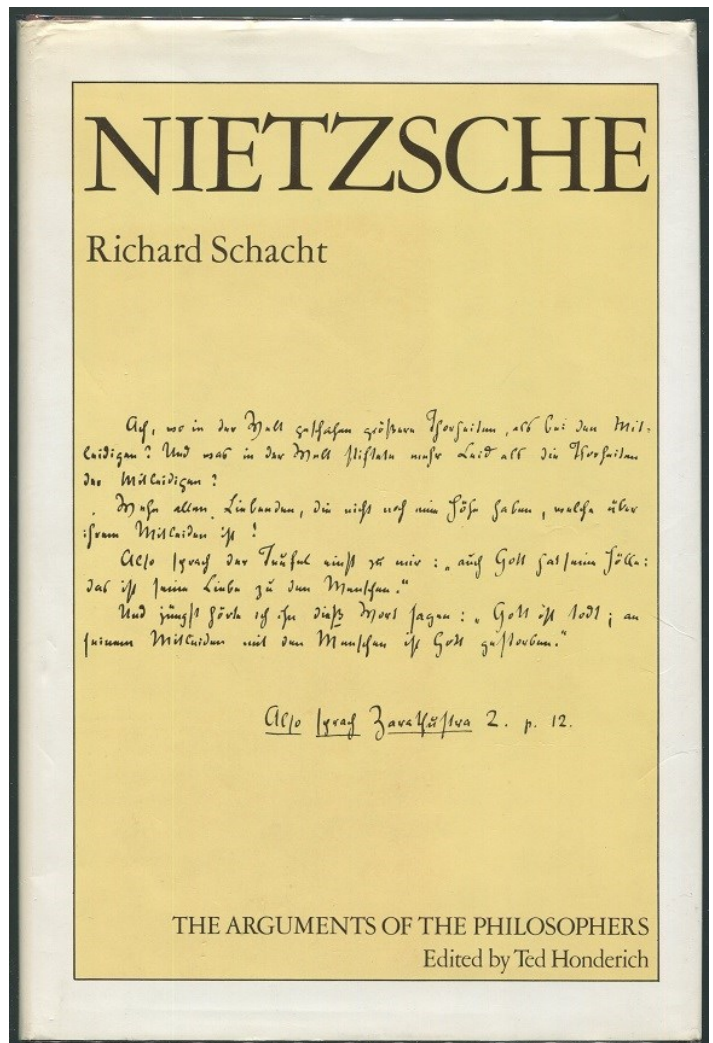 NIETZSCHE
Richard Schacht
Ach, wo in der Welt geschahen größere Thorheiten, als bei den Mit-
leidigen? Und was in der Welt stiftete mehr Leid als die Thorheiten
der Mitleidigen?
Wehe allen Liebenden, die nicht noch eine Höhe haben, welche über
ihrem Mitleiden ist!
Also sprach der Teufel einst zu mir: „auch Gott hat seine Hölle:
das ist seine Liebe zu den Menschen.“
Und jüngst hörte ich ihn dieß Wort sagen: „Gott ist todt; an
seinem Mitleiden mit den Menschen ist Gott gestorben.“
Also sprach Zarathustra 2. p. 12.
THE ARGUMENTS OF THE PHILOSOPHERS
Edited by Ted Honderich